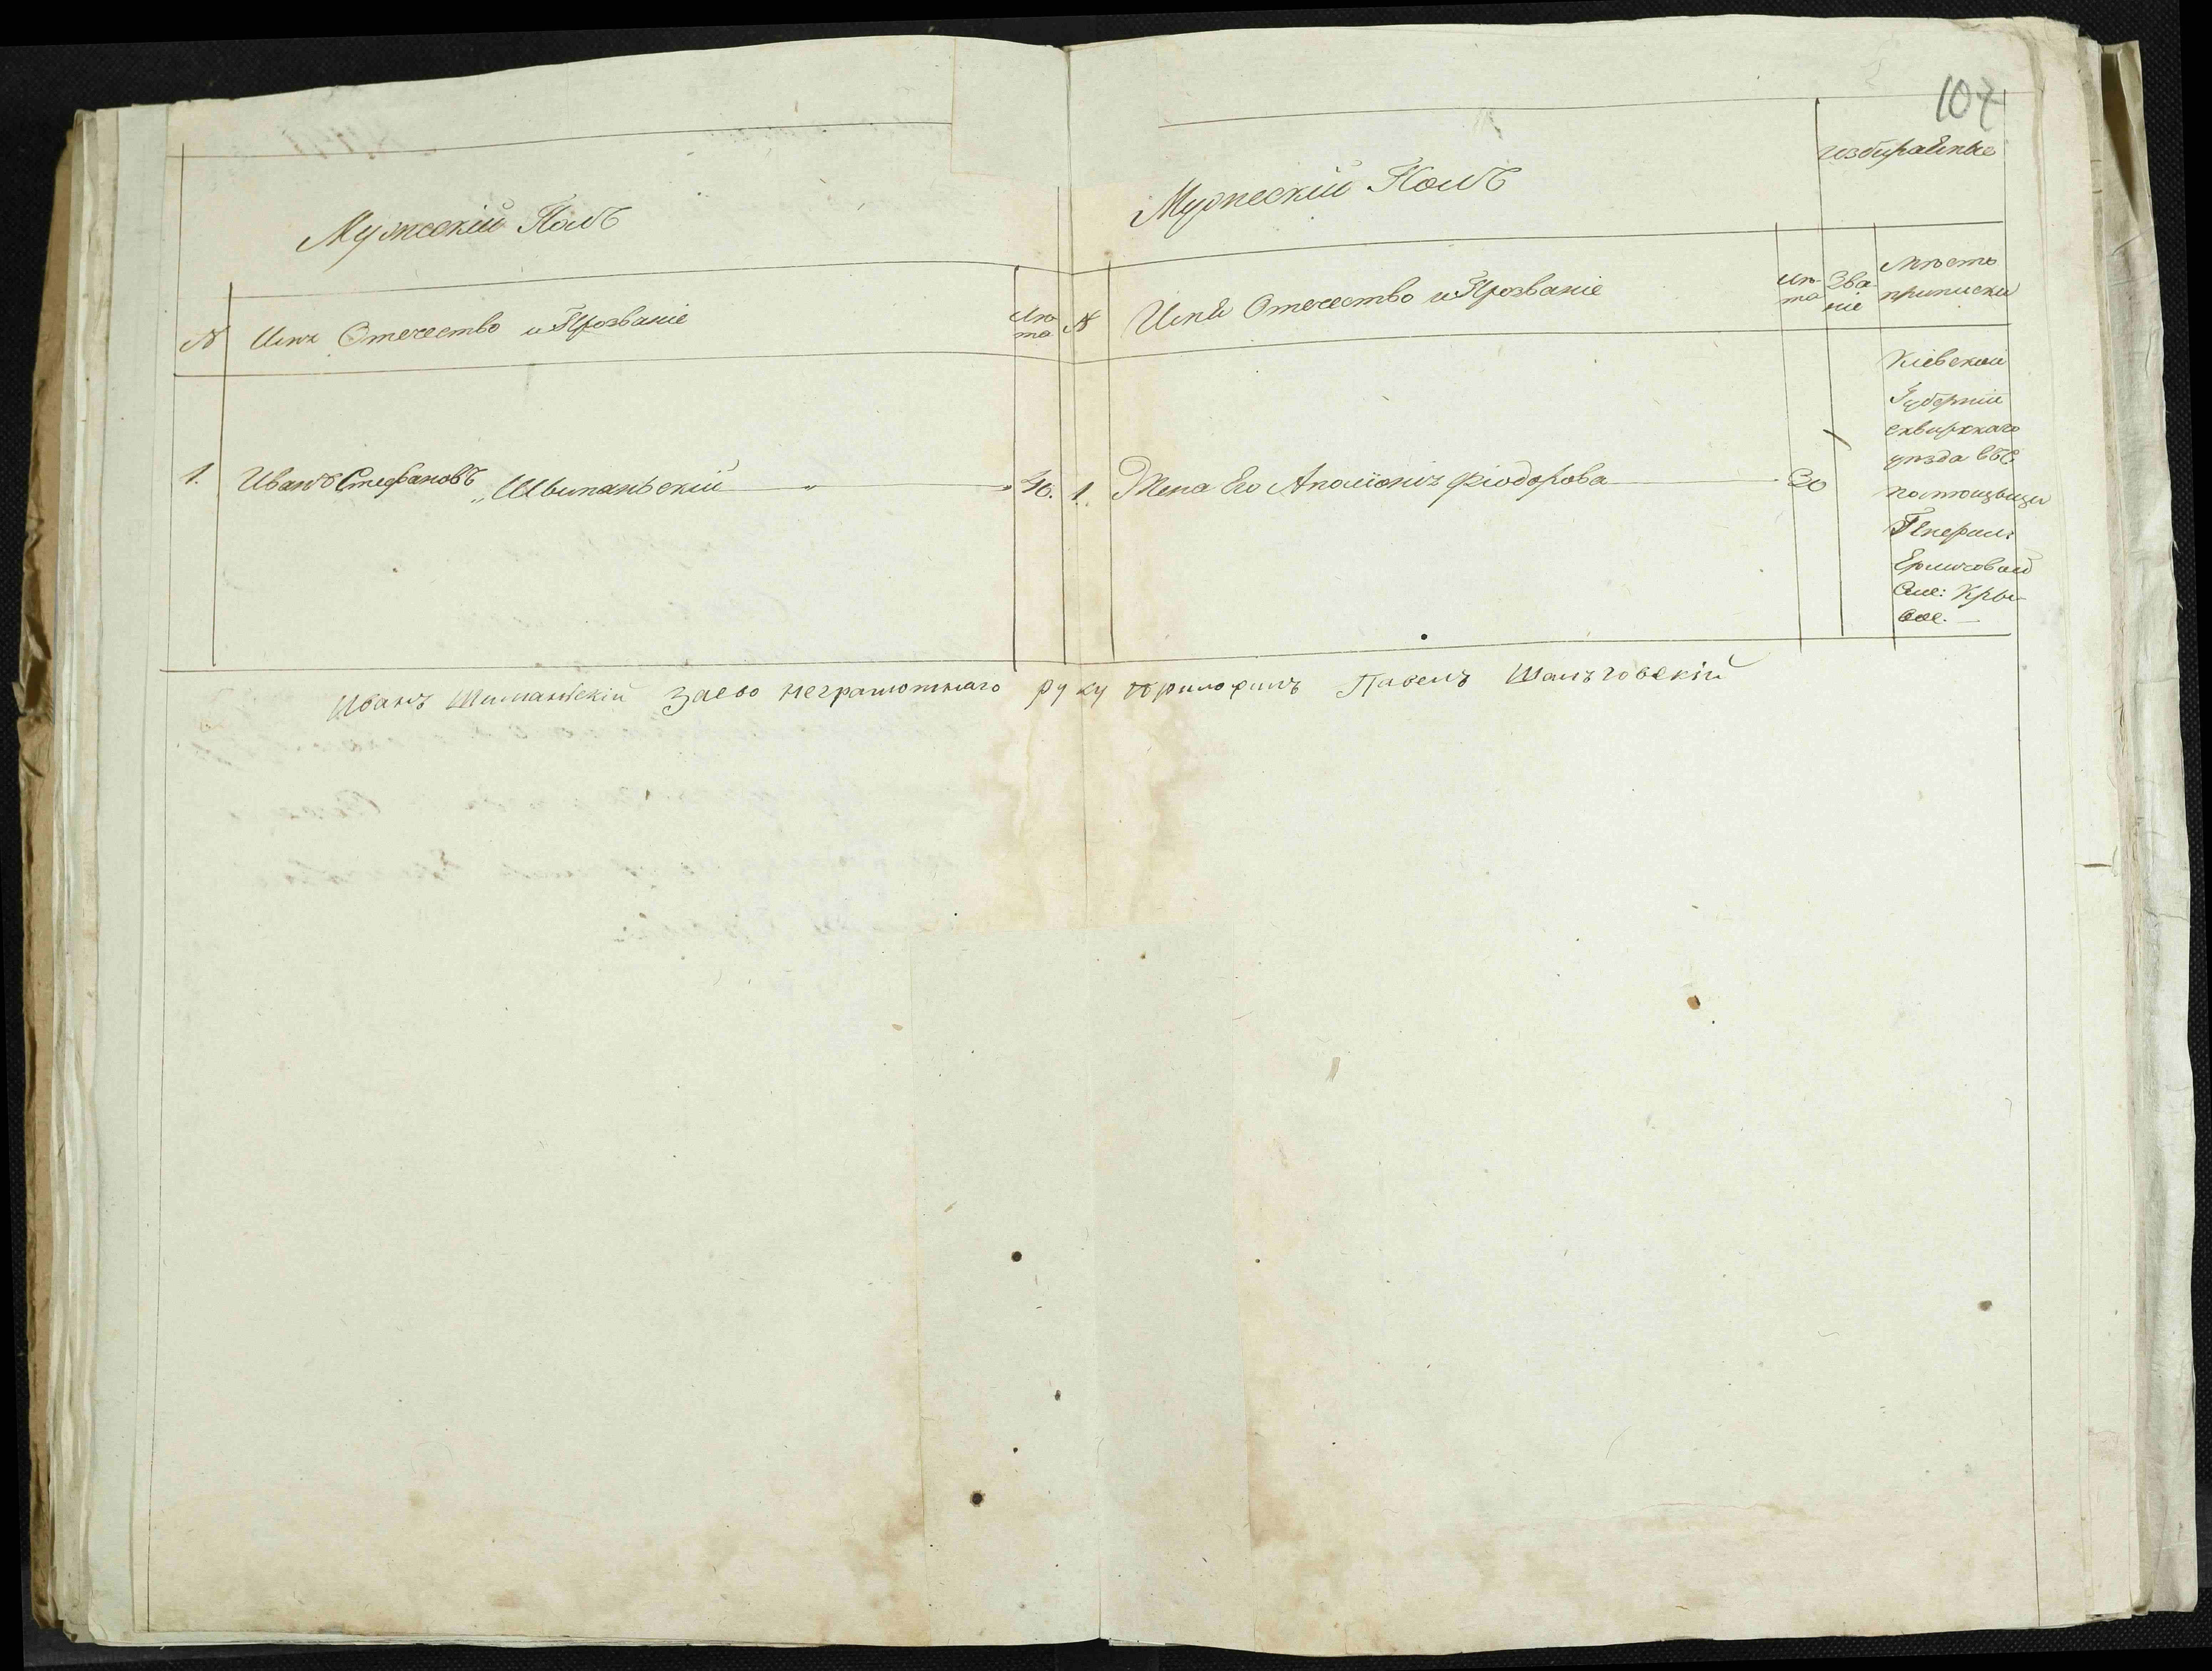 107
Мужескій Полъ
N Имя Отечество и Прозваніе Лѣ-
та
1. Иванъ Стефановъ Шиманьскій 40.
Мужескій Полъ
избираемые
N Имя Отечество и Прозваніе Лѣ-
та
Зва-
ніе
мѣсто
приписки
1. Жена Его Аполіонія Фіодорова 30
Кіевской
Губерніи
сквирскаго
уѣзда въ
помющыци
Генерал:
Сел:
Иванъ Шиманьскій Заево неграмотнаго руку приложилъ Павелъ